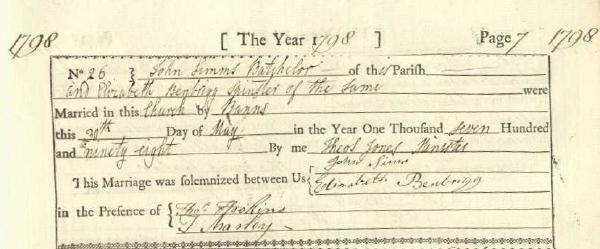 1798 [ The Year 1798 ] Page 7 1798
No 26 } John Simms Batchelor of this Parish
and Elizabeth Benbrigg Spinster of the Same were
Married in this Church by Banns
this 29th Day of May in the Year One Thousand seven Hundred
and ninety eight By me Theos Jones Minister
This Marriage was solemnized between Us { John Simms
Elizabeth Benbrigg
in the Presence of { Thos Hoskins